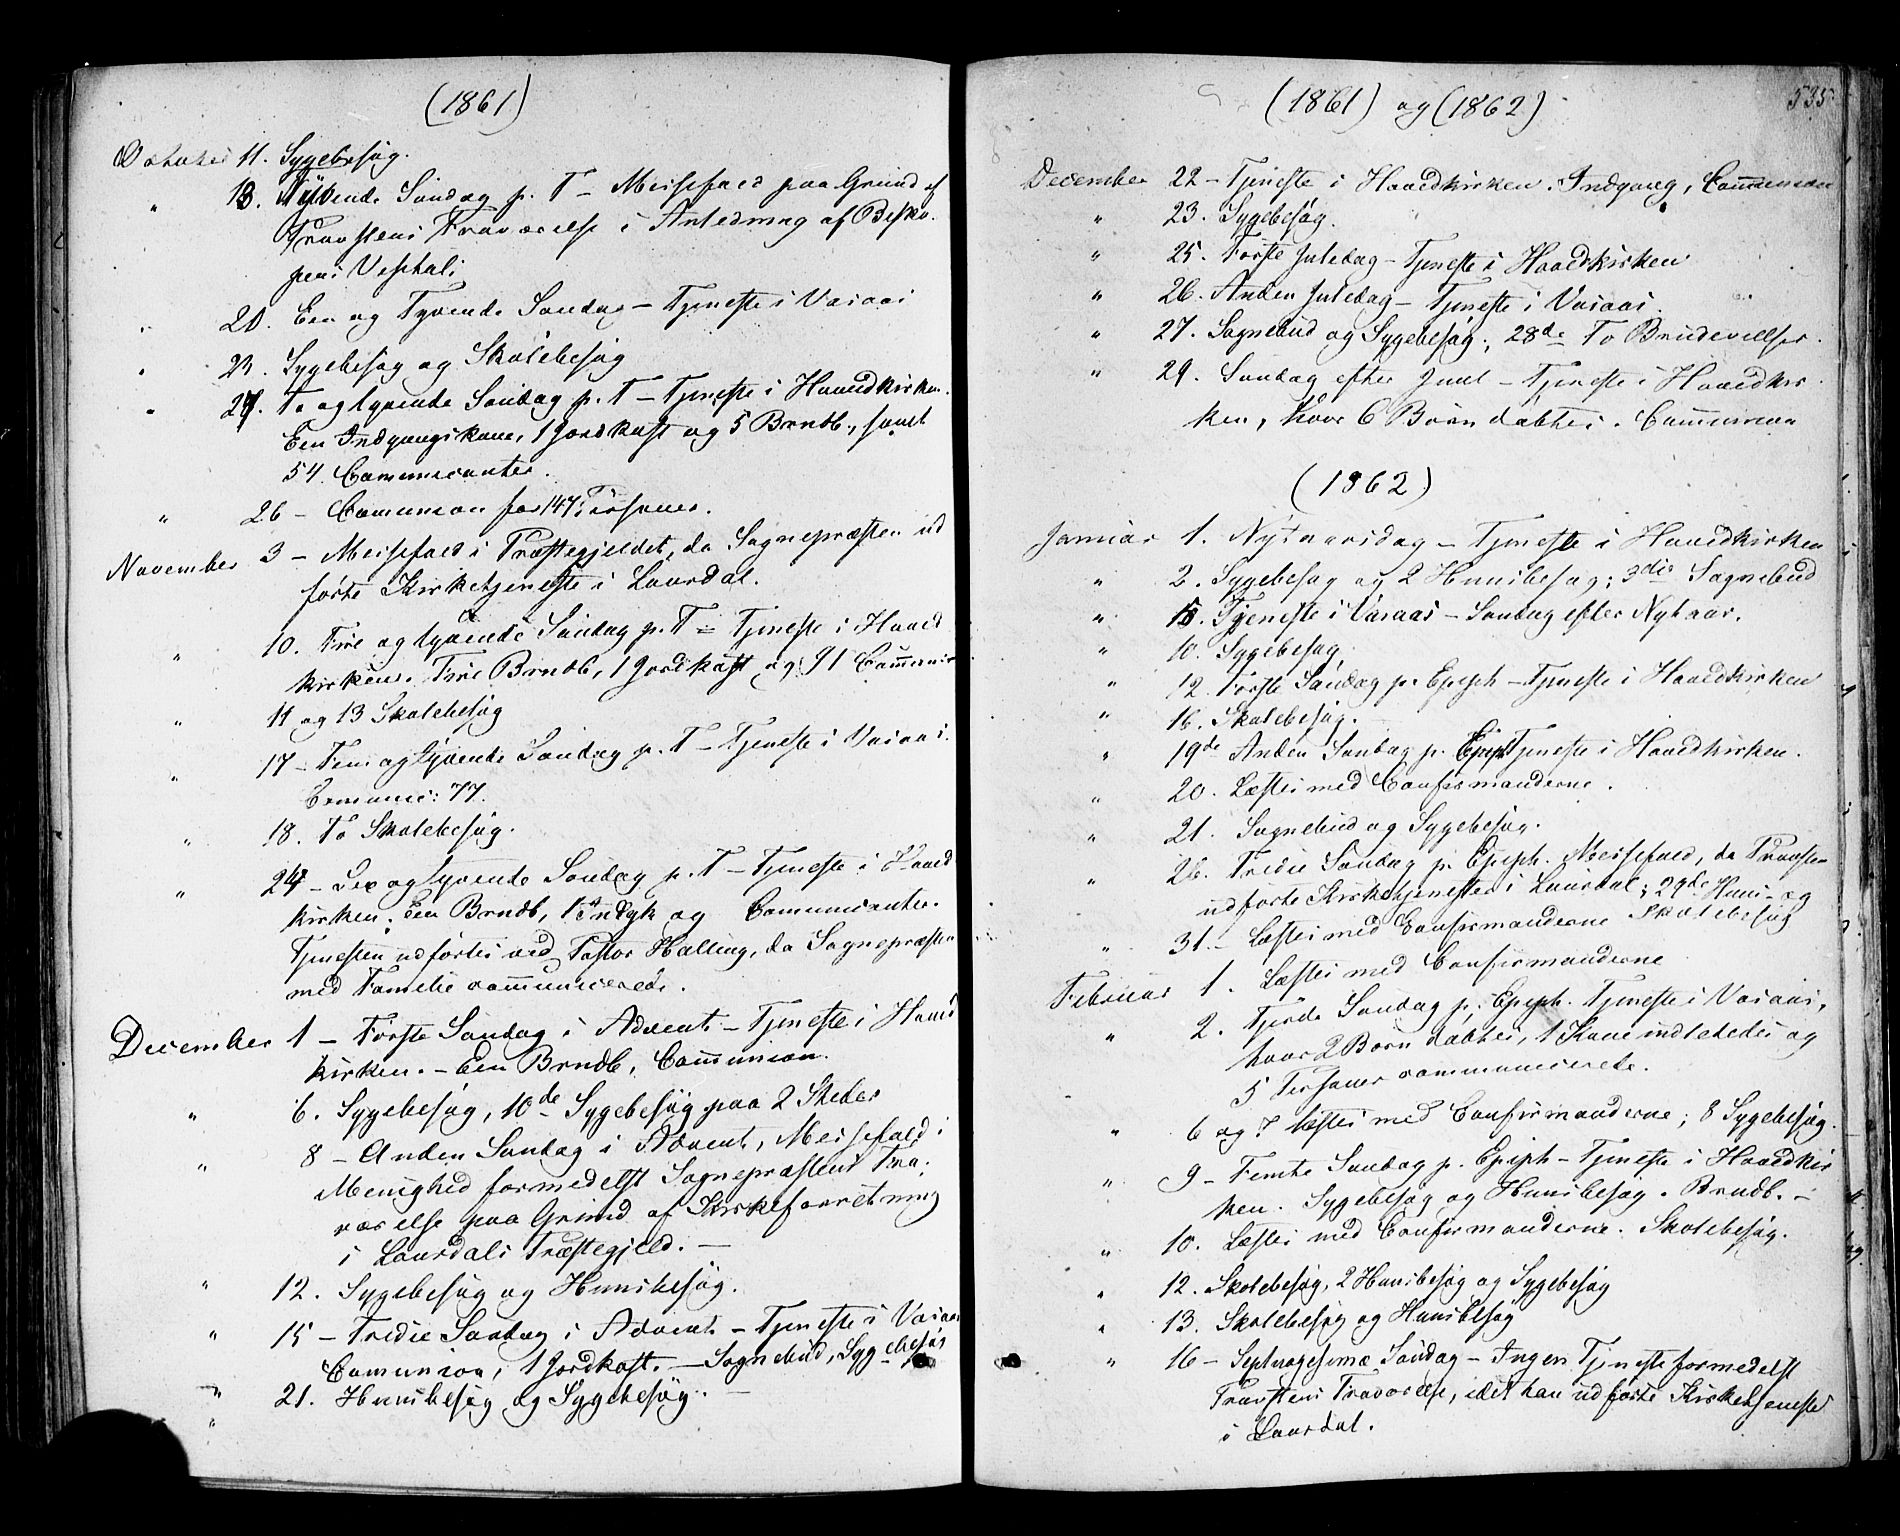 (1861)
October 11. Sygebesøg.
" 13. Tyvende Søndag p. T – Messefald paa Grund af
Præstens Fraværelse i Anledning af Bisko-
pens Visitats
" 20. Een og Tyvende Søndag – Tjeneste i Vraaas
" 23. Sygebesøg og Skolebesøg
" 27. To og tyvende Søndag p. T – Tjeneste i Hovedkirken.
Een Indgangskone, 1 Jordkast og 5 Brndb., samt
54 Communicanter.
" 26 – Communion for 147 Personer.
November 3 – Messefald i Præstegjeldet, da Sognepræsten ud
førte Kirketjeneste i Laurdal.
" 10. Fire og tyvende Søndag p. T – Tjeneste i Hoved
kirken. Fire Brndb, 1 Jordkast og 91 Communic
" 11 og 13 Skolebesøg
" 17 – Fem og tyvende Søndag p. T – Tjeneste i Vraaas.
Communic: 77.
" 18. To Skolebesøg.
" 24 – Sex og tyvende Søndag p. T – Tjeneste i Hoved
kirken. Een Brndb, 1 Indgk og Communicanter.
Tjenesten udførtes ved Pastor Halling, da Sognepræsten
med Familie communicerede.
December 1 – Første Søndag i Advent – Tjeneste i Hoved
kirken. – Een Brndb, Communion.
" 6. Sygebesøg, 10de Sygebesøg paa 2 Steder
" 8 – Anden Søndag i Advent, Messefald i
Menighed formedelst Sognepræstens Fra-
værelse paa Grund af Kirkeforretning
i Laurdals Præstegjeld. –
" 12. Sygebesøg og Huusbesøg.
" 15 – Tredie Søndag i Advent – Tjeneste i Vraaas
Communion, 1 Jordkast. – Sognebud, Sygebesøg
" 21. Huusbesøg og Sygebesøg. –
"
(1861) og (1862)
535
December 22 – Tjeneste i Hovedkirken. Indgang, Communion
" 23. Sygebesøg.
" 25. Første Juledag – Tjeneste i Hovedkirken
" 26. Anden Juledag – Tjeneste i Vraaas.
" 27. Sognebud og Sygebesøg; 28de To Brudevielser.
" 29. Søndag efter Juul – Tjeneste i Hovedkir-
ken, hvor 6 Børn døbtes. Communion
(1862)
Januar 1. Nytaarsdag – Tjeneste i Hovedkirken
" 2. Sygebesøg og 2 Huusbesøg; 3die Sognebud
" 5. Tjeneste i Vraaas – Søndag efter Nytaar.
" 10. Sygebesøg
" 12. Første Søndag p. Epiph – Tjeneste i Hovedkirken
" 16. Skolebesøg.
" 19de Anden Søndag p. Epiph Tjeneste i Hovedkirken.
" 20. Læstes med Confirmanderne.
" 21. Sognebud og Sygebesøg.
" 26. Tredie Søndag p. Epiph. Messefald, da Præsten
udførte Kirketjenesten i Laurdal; 29de Huus- og
Skolebesøg
" 31. – Læstes med Confirmanderne
Februar 1. Læstes med Confirmanderne
" 2. Fjerde Søndag p. Epiph. Tjeneste i Vraaas,
hvor 2 Børn døbtes, 1 Kone indlededes og
5 Personer communicerede.
" 6 og 7 læstes med Confirmanderne; 8 Sygebesøg.
" 9 – Femte Søndag p. Epiph – Tjeneste i Hovedkir
ken. Sygebesøg og Huusbesøg. Brndb. –
" 10. Læstes med Confirmanderne. Skolebesøg.
" 12. Skolebesøg, 2 Huusbesøg og Sygebesøg
" 13. Skolebesøg og Huusbesøg
" 16 – Septuagesimæ Søndag – Ingen Tjeneste formedelst
Præstens Fraværelse, idet han udførte Kirketjeneste
i Laurdal.